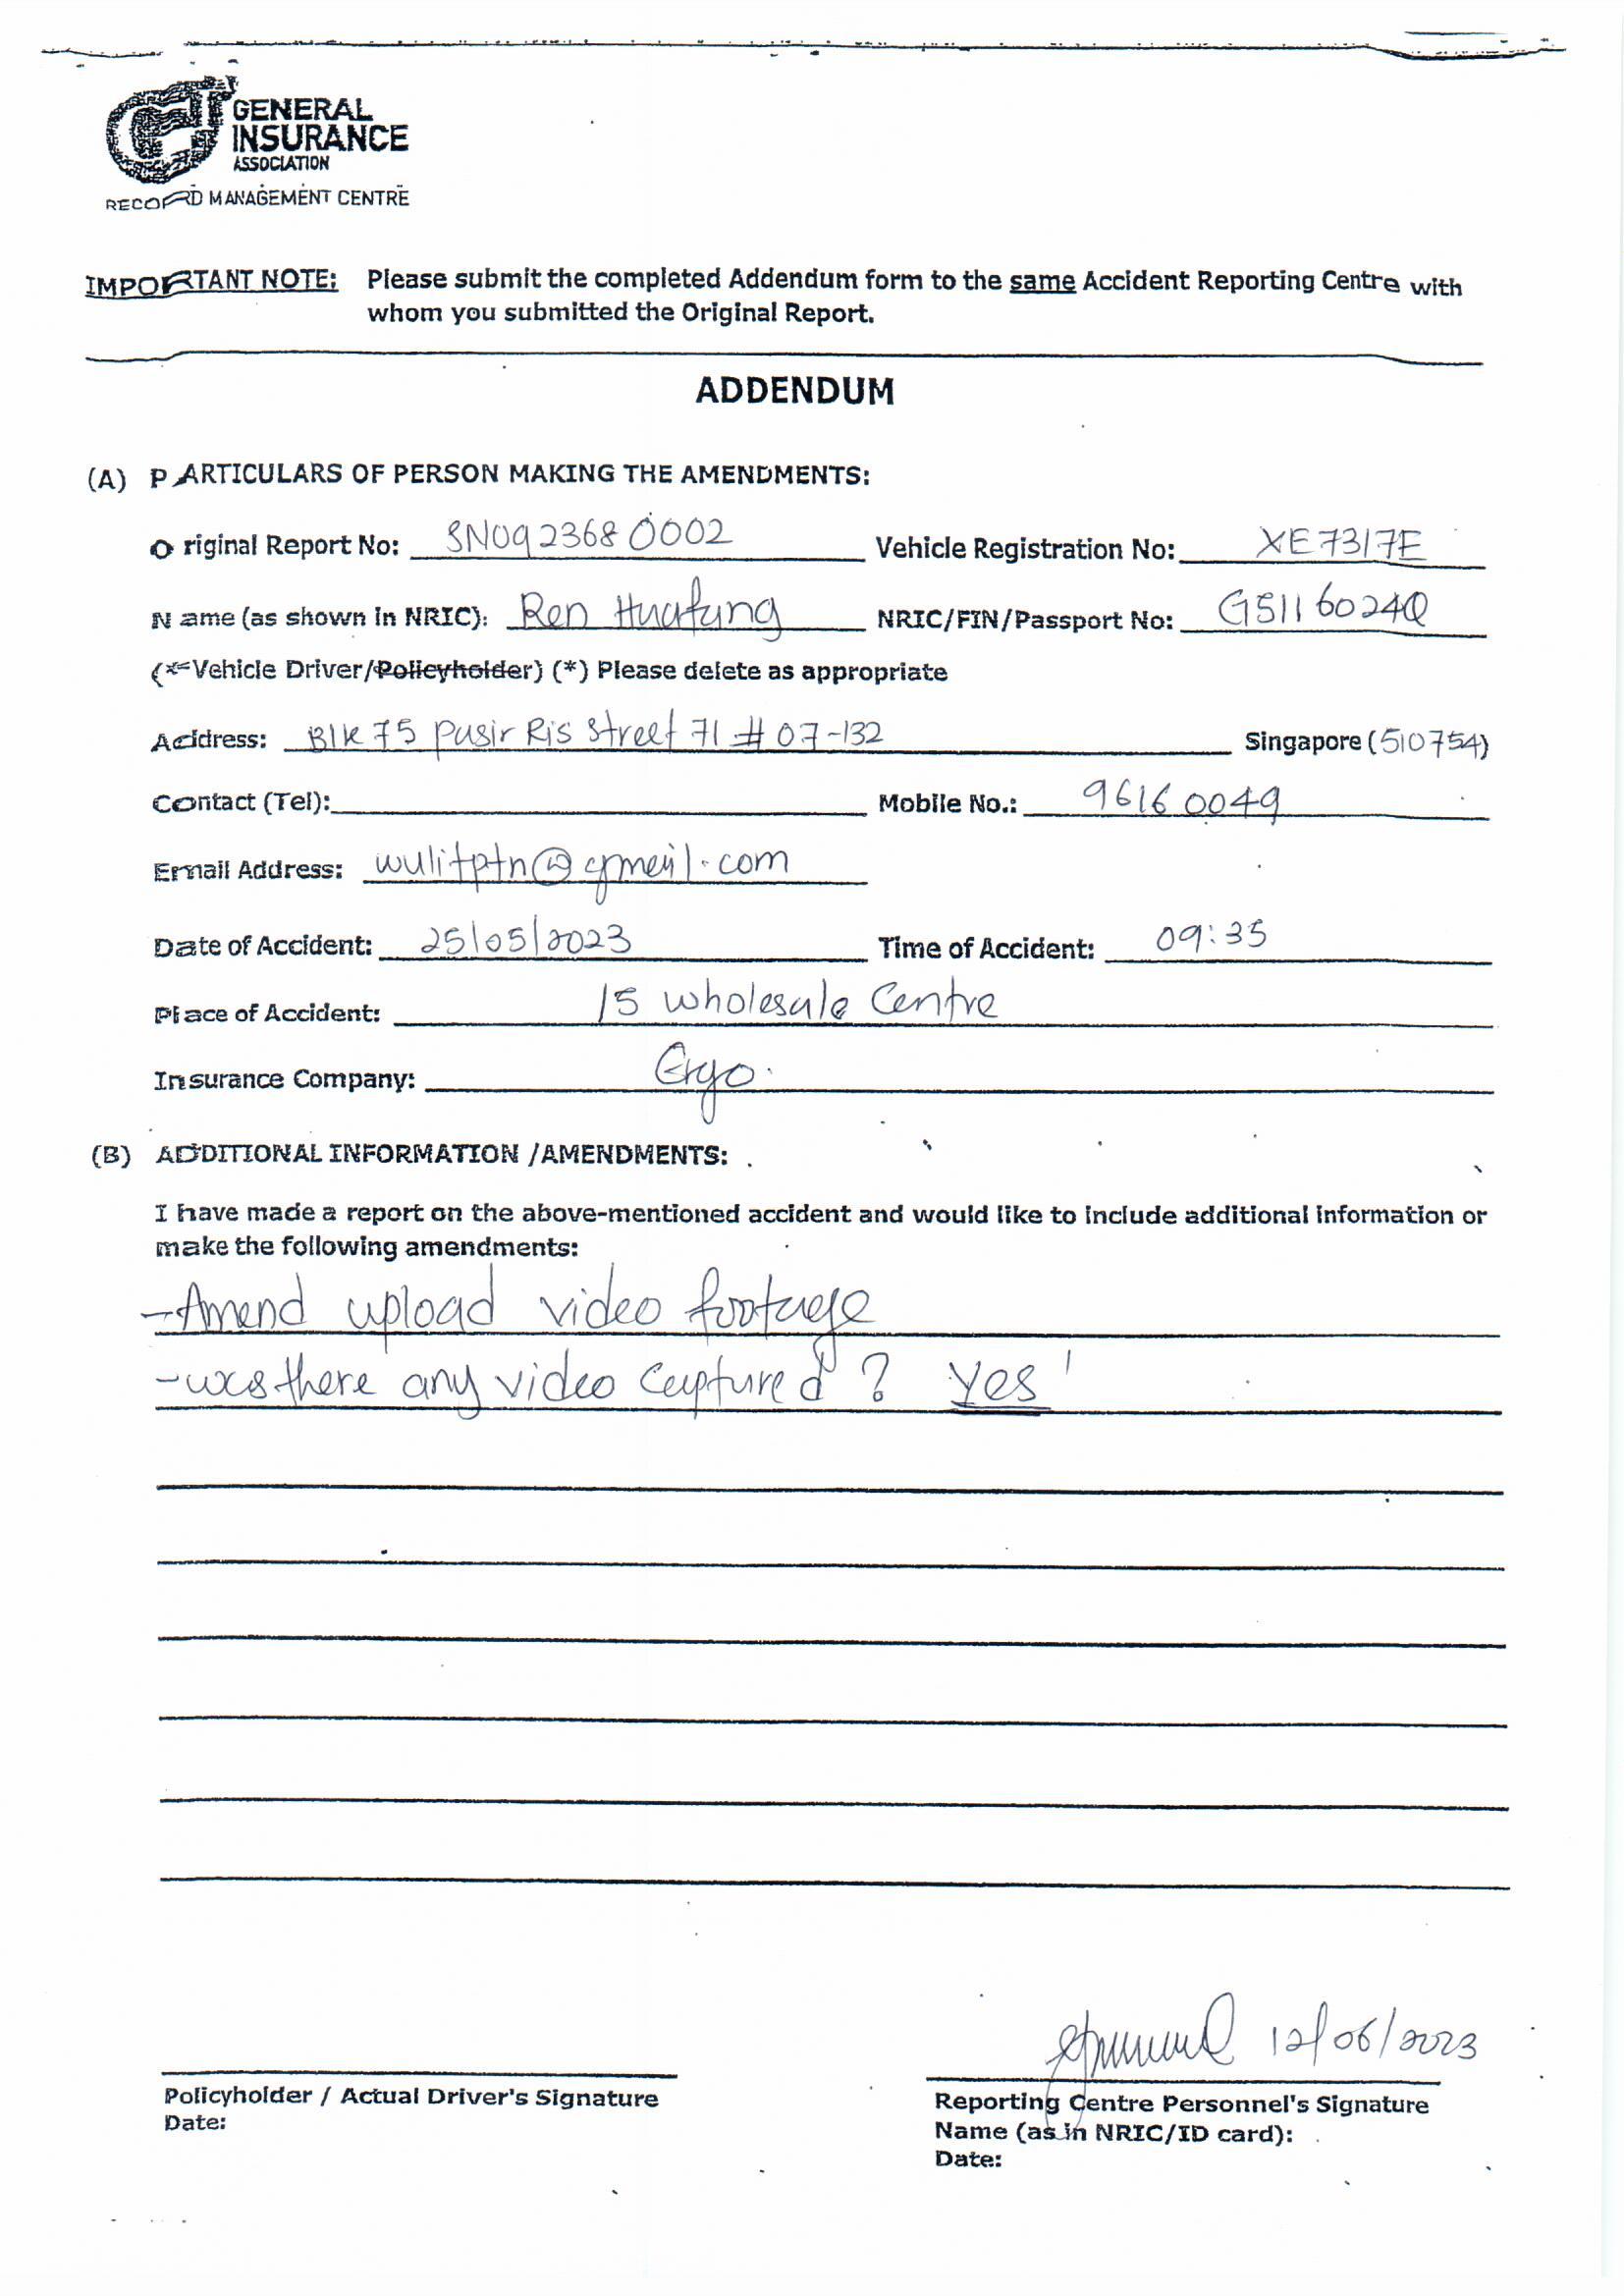 GENERAL
INSURANCE
ASSOCIATION
RECORD MANAGEMENT CENTRE
IMPORTANT NOTE: Please submit the completed Addendum form to the same Accident Reporting Centre with
whom you submitted the Original Report.
ADDENDUM
(A) PARTICULARS OF PERSON MAKING THE AMENDMENTS:
Original Report No: SN0923680002 Vehicle Registration No: XE7317E
Name (as shown in NRIC): Ren Huafung NRIC/FIN/Passport No: G5116024Q
(*Vehicle Driver/Policyholder) (*) Please delete as appropriate
Address: Blk 75 Pasir Ris Street 71 #07-132 Singapore (510754)
Contact (Tel): Mobile No.: 96160049
Email Address: wulitptn@gmail.com
Date of Accident: 25/05/2023 Time of Accident: 09:35
Place of Accident: 15 wholesale Centre
Insurance Company: Ergo
(B) ADDITIONAL INFORMATION /AMENDMENTS:
I have made a report on the above-mentioned accident and would like to include additional information or
make the following amendments:
-Amend upload video footage
-was there any video captured? Yes
12/06/2023
Policyholder / Actual Driver's Signature Reporting Centre Personnel's Signature
Date: Name (as in NRIC/ID card):
Date: